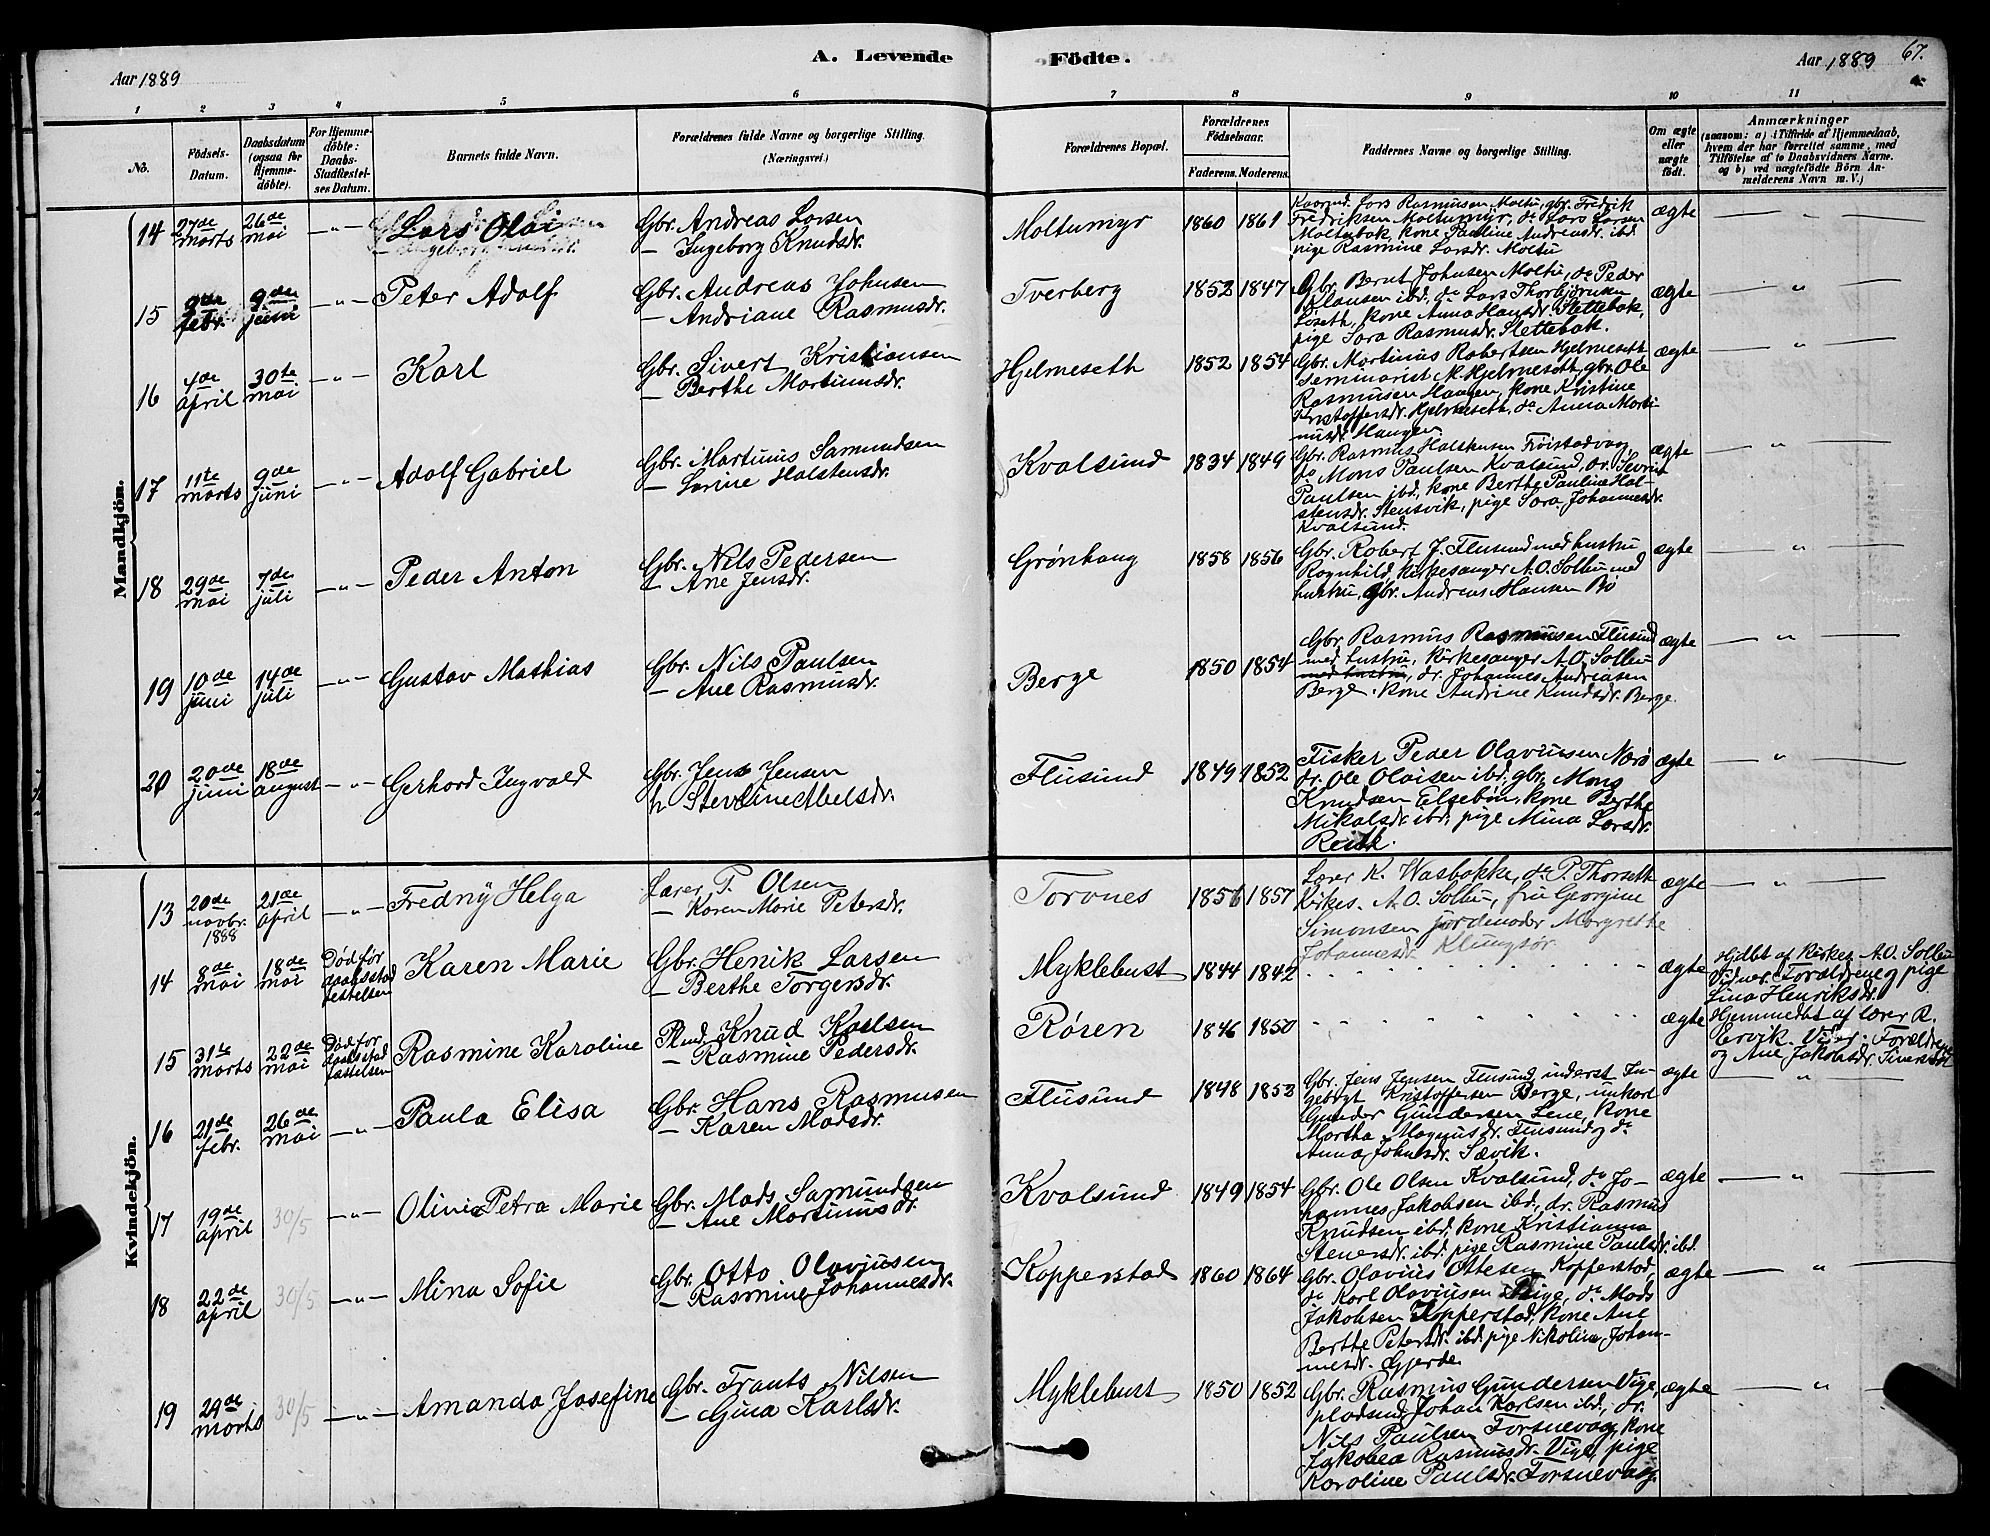 A. Levende Födte.
Aar 1889
Aar 1889 67.
1 2 3 4 5 6 7 8 9 10 11
No.
Födsels-Datum.
Daabsdatum (ogsaa for Hjemme-döbte).
For Hjemme-döbte: Daabs-Stadfæstel-ses Datum.
Barnets fulde Navn.
Forældrenes fulde Navne og borgerlige Stilling.
(Næringsvei.)
Forældrenes Bopæl.
Forældrenes Födselsaar.
Faderens. Moderens.
Faddernes Navne og borgerlige Stilling.
Om ægte eller uægte födt.
Anmærkninger
(saasom: a) i Tilfælde af Hjemmedaab,
hvem der har forrettet samme, med
Tilföielse af to Daabsvidners Navne.
og b) ved uægtefödte Börn An-
melderens Navn m. V.)
Mandkjön.
14 27de marts 26de mai — " — Lars Olai Gbr. Andreas Larsen
— Ingeborg Knudsdr. Moltumyr 1860 1861 Lars Rasmussen Moltu, gbr. Fredrik
Fredriksen Moltumyr, do Lars Larsen
Moltubak, kone Pauline Andreasdr. ibd
pige Rasmine Larsdr. Moltu ægte — " —
15 9de febr. 9de juni — " — Peter Adolf Gbr. Andreas Johnsen
— Andriane Rasmusdr. Tverberg 1852 1847 Gbr. Bernt Johnsen Moltu, do Peder
Klausen ibd, do Lars Thorbjörnsen
Löseth, kone Anna Hansdr. Slettebak,
pige Sara Rasmusdr. Slettebak. ægte — " —
16 4de april 30te mai — " — Karl Gbr. Sivert Kristiansen
— Berthe Martinusdr. Hjelmeseth 1852 1854 Gbr. Martinus Robertsen Hjelmeseth
Seminarist M. Hjelmeseth, gbr. Ole
Rasmusen Haugen, kone Kristine
Kristoffersdr. Hjelmeseth, do Anna Marti-
nusdr. Haugen ægte — " —
17 11te marts 9de juni — " — Adolf Gabriel Gbr. Martinus Samundsen
— Sorine Halstensdr. Kvalsund 1834 1849 Gbr. Rasmus Halstensen Fröistadvag
do Mons Paulsen Kvalsund, dr. Sevrin
Paulsen ibd, kone Berthe Pauline Hal-
stensdr. Stensvik, pige Sara Johannesdr.
Kvalsund. ægte — " —
18 29de mai 7de juli — " — Peder Anton Gbr. Nils Pedersen
— Ane Jensdr. Grönhaug 1858 1856 Gbr. Robert J. Flusund med hustru
Ragnhild, kirkesanger A. O. Solbu med
hustru, gbr. Andreas Hansen Bö ægte — " —
19 10de juni 14de juli — " — Gustav Mathias Gbr. Nils Paulsen
— Ane Rasmusdr. Berge 1850 1854 Gbr. Rasmus Rasmusen Flusund
med hustru, kirkesanger A. O. Solbu
med hustru, dr. Johannes Andreasen
Berge, kone Andrine Knudsdr. Berge. ægte — " —
20 20de juni 18de august — " — Gerhard Ingvald Gbr. Jens Jensen
h. Stevline Abelsdr. Flusund 1849 1852 Fisker Peder Olavusen Nærö
dr. Ole Olaisen ibd, gbr. Mons
Knudsen Elsebön, kone Berthe
Mikalsdr. ibd, pige Mina Larsdr.
ægte — " —
Kvindekjön.
13 20de novbr. 1888 21de april — " — Fredny Helga Lærer P. Olsen
— Karen Marie Petersdr. Torvnes 1856 1857 Lærer K. Wasbakke, do P. Thorseth
Kirkes. A. O. Solbu, fru Georgine
Simonsen jordemoder Margrethe
Johannesdr. Klungsör ægte — " —
14 8de mai 18de mai Död för daabsstad-festelsen Karen Marie Gbr. Henrik Larsen
— Berthe Torgersdr. Myklebust 1844 1842 ægte Hjdbt af kirkes. A. O. Solbu
Vidner: Forældrene og pige
Lina Henriksdr.
15 31te marts 22de mai Död for daabsstad-fæstelsen Rasmine Karoline Knud Karlsen
— Rasmine Pedersdr. Røren 1846 1850 ægte Hjemmedbt af lærer R.
Ervik. Vid.: Forældrene
og Ane Jakobsdr.
16 21de febr. 26de mai — " — Paula Elisa Gbr. Hans Rasmusen
— Karen Madsdr. Flusund 1848 1853 Gbr. Jens Jensen Flusund, inderst In-
gebrigt Kristoffersen Berge, unkarl
Gunder Gundersen Lene, kone
Martha Magnusdr. Flusund og do
Anna Johnsdr. Sævik. ægte — " —
17 19de april 30/5 — " — Olivie Petra Marie Gbr. Mads Samundsen
— Ane Martinusdr. Kvalsund 1849 1854 Gbr. Ole Olsen Kvalsund, do Jo-
hannes Jakobsen ibd, dr. Rasmus
Knudsen ibd, kone Kristianna
Stenersdr. ibd, pige Rasmine Paulsdr. ibd. ægte — " —
18 22de april 30/5 — " — Mina Sofie Gbr. Otto Olavusen
— Rasmine Johannesdr. Kopperstad 1860 1864 Gbr. Olavius Ottesen Kopperstad,
do Karl Olaviusen Vige, do Mads
Jakobsen Kopperstad, kone Ane
Berthe Petersdr. ibd, pige Nikoline Johan-
nesdr. Gjerde ægte — " —
19 29de marts 30/5 — " — Amanda Josefine Gbr. Frants Nilsen
— Gina Karlsdr. Myklebust 1850 1852 Gbr. Rasmus Gundersen Vige,
pladsmd Johan Karlsen ibd, dr.
Nils Paulsen Forsnevag, kone
Jakobea Rasmusdr. Vige, pige
Karoline Paulsdr. Forsnevag. ægte — " —